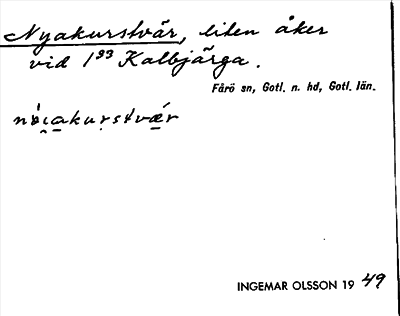 Nyakurstvär, liten åker
vid 1³³ Kalbjärga.
Fårö sn, Gotl. n. hd, Gotl. län.
INGEMAR OLSSON 19 49